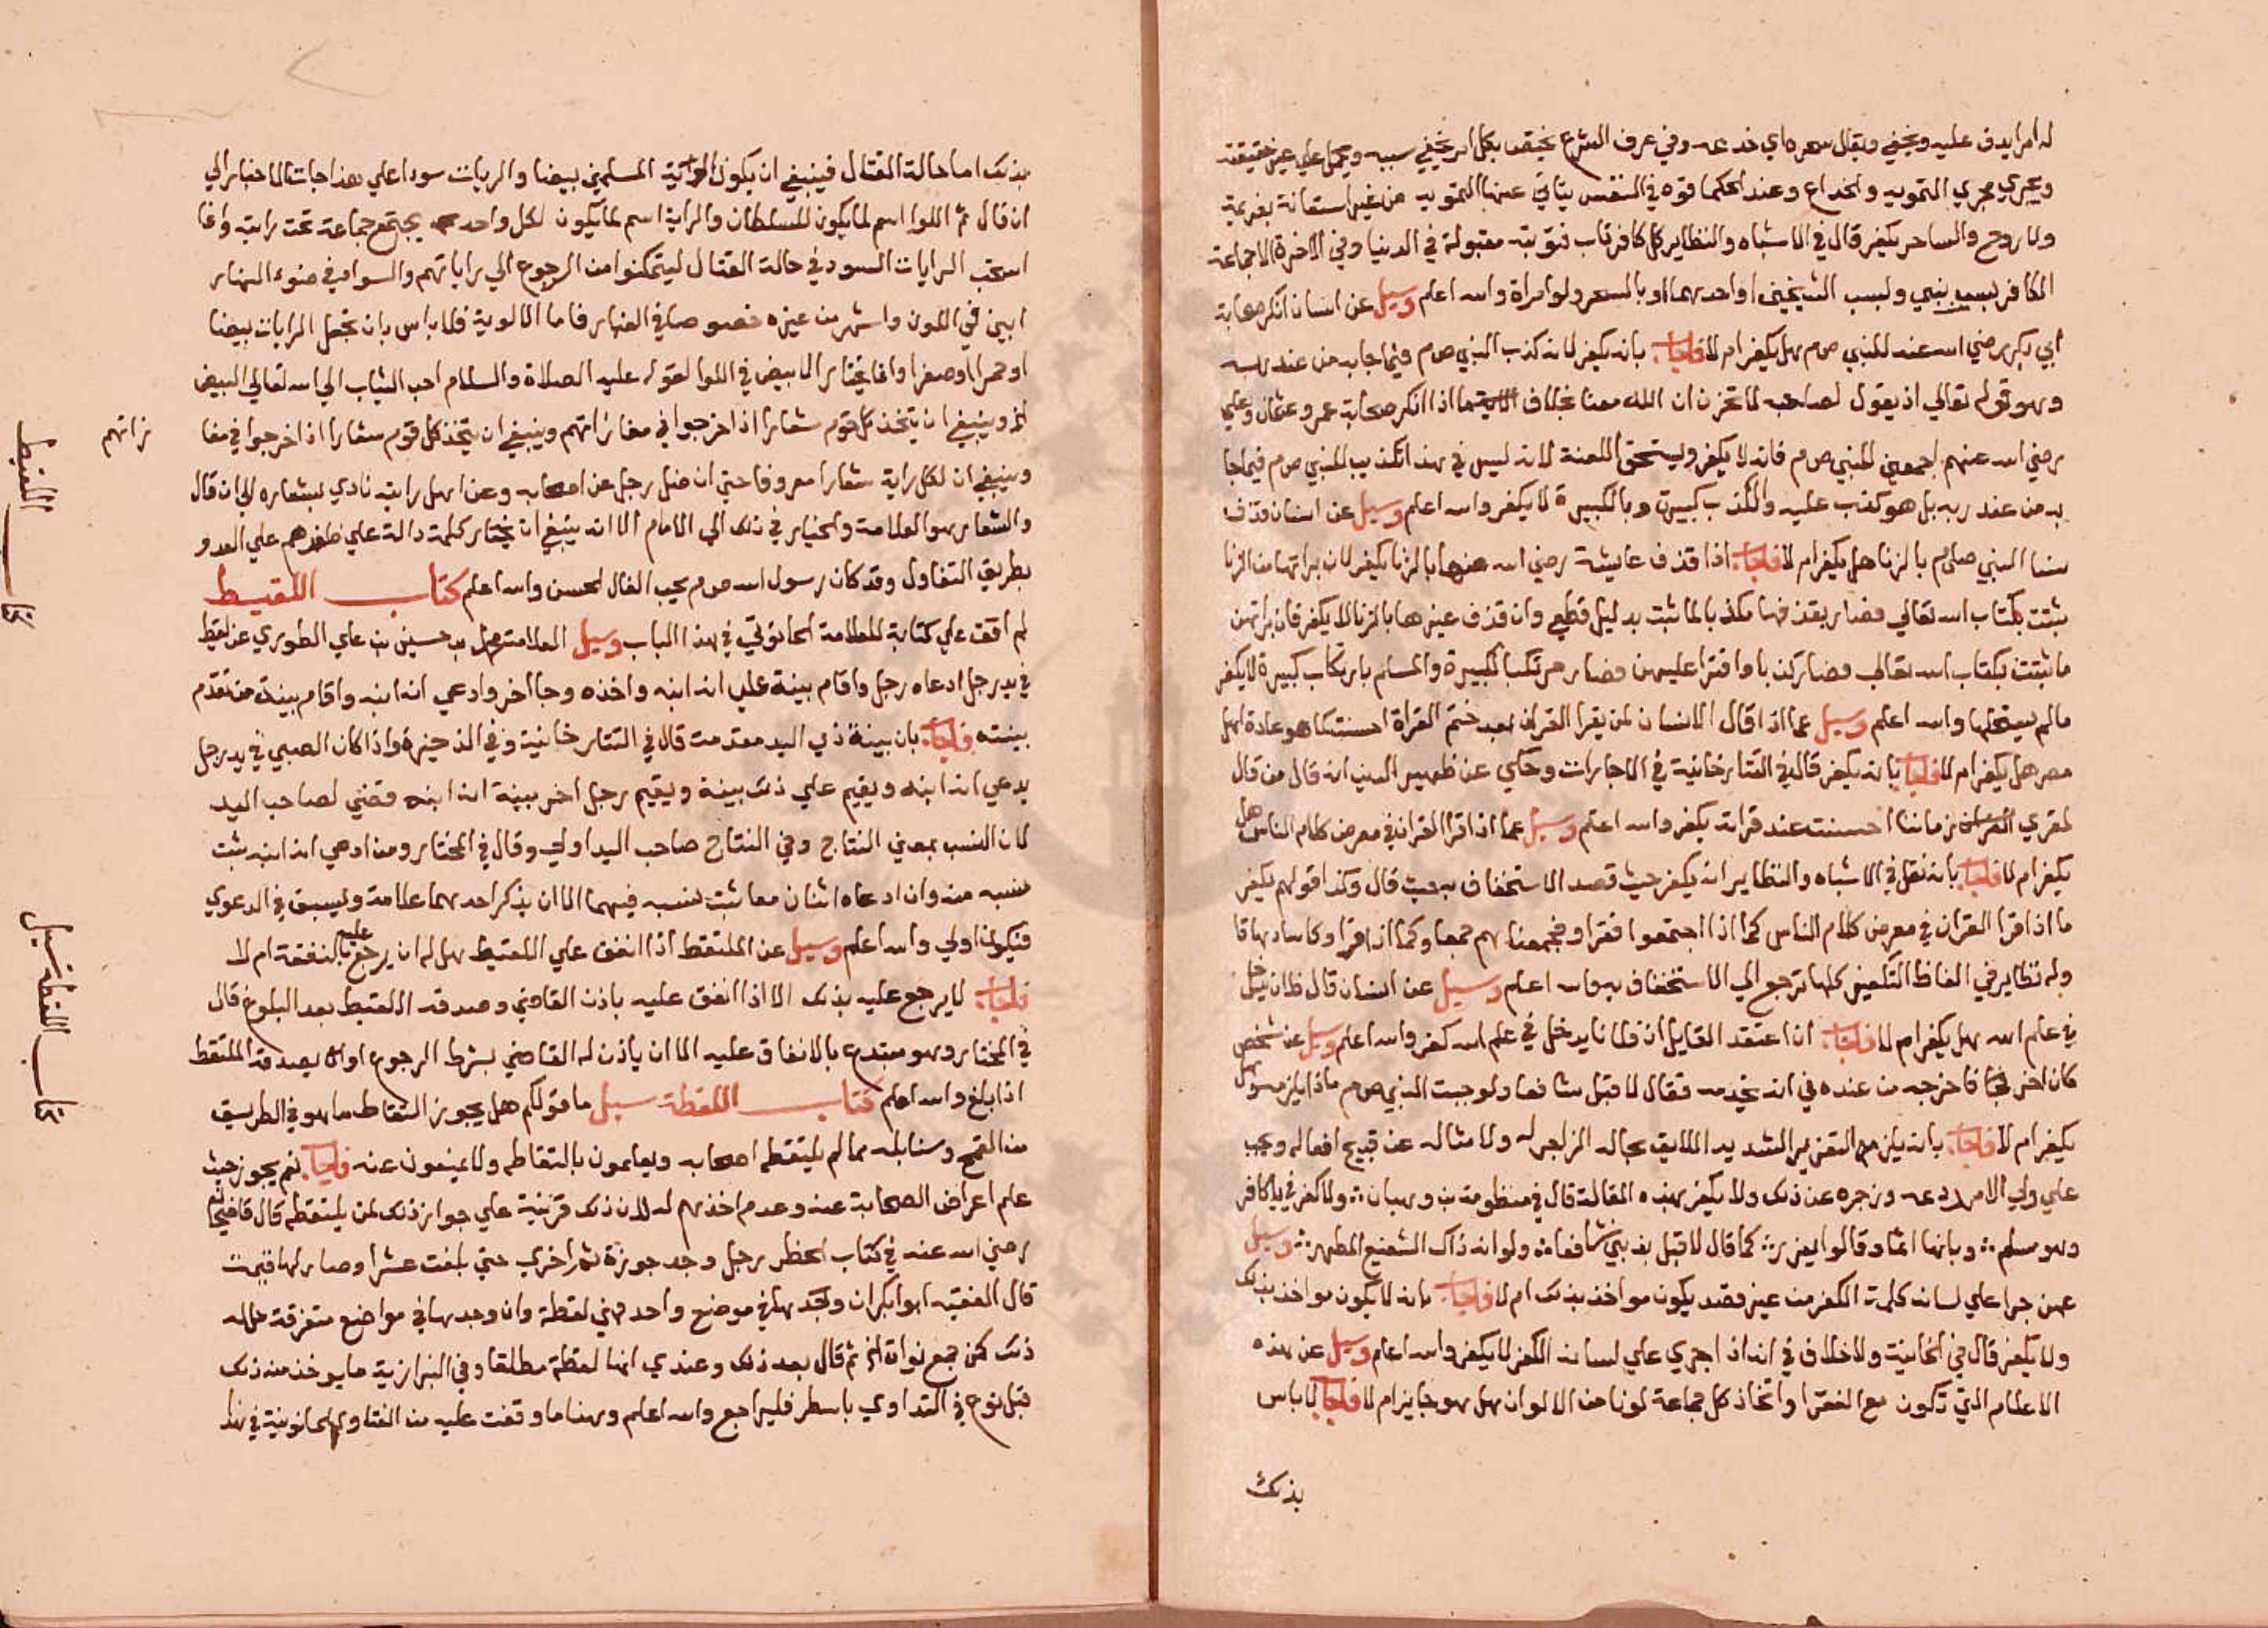 له امرا يدق عليه ويخفي ويقال سحره اي خدعه وفي عرف الشرع يختص بكل امر يخفي سببه ويتخيل علي غير حقيقته
ويجري مجري التمويه والخداع وعند الحكما قوه في النفس يتاتي عنها التمويه من غير استعانة بعزيمة
ولا روح والساحر يكفر قال في الاشباه والنظاير كل كافر تاب فتوبته مقبولة في الدنيا وفي الاخرة الا جماعة
الكافر بسب نبي وبسب الشيخين او احدهما او بالسحر ولو امراة والله اعلم وسيل عن انسان انكر صحابة
ابي بكر رضي الله عنه للنبي ص م هل يكفر ام لا فاجاب بانه يكفر لانه كذب النبي ص م فيما جا به من عند ربه
وهو قوله تعالي اذ يقول لصاحبه لا تحزن ان الله معنا بخلاف ما اذا انكر صحابة عمر وعثمان وعلي
رضي الله عنهم اجمعين للنبي ص م فانه لا يكفر ويستحق اللعنة لانه ليس في هذا تكذيب للنبي ص م فيما جا
به من عند ربه بل هو كذب عليه والكذب كبيرة وبالكبيرة لا يكفر والله اعلم وسيل عن انسان قذف
نسا النبي ص م بالزنا هل يكفر ام لا فاجاب اذا قذف عايشة رضي الله عنها بالزنا يكفر لان براتها من الزنا
ثبتت بكتاب الله تعالي فصار بقذفها مكذبا لما ثبت بدليل قطعي وان قذف غيرها بالزنا لا يكفر فان براتهن
ما ثبتت بكتاب الله تعالي فصار كذبا وافترا عليهن فصار مرتكبا لكبيرة والمسلم بارتكاب كبيرة لا يكفر
مالم يستحلها والله اعلم وسيل عما اذا قال الانسان لمن يقرا القران بعد ختم القراة احسنت كما هو عادة اهل
مصر هل يكفر ام لا فاجاب بانه يكفر قال في التتارخانية في الاجارات وحكي عن ظهير الدين انه قال من قال
لمقري القران زماننا احسنت عند قراته يكفر والله اعلم وسيل عما اذا قرا القران في معرض كلام الناس هل
يكفر ام لا فاجاب بانه نقل في الاشباه والنظاير انه يكفر حيث قصد الاستخفاف به حيث قال وكذا قولهم يكفر
ما اذا قرا القران في معرض كلام الناس كما اذا اجتمعوا فقرا وفجمعناهم جمعا وكما اذا قرا وكاسا دهاقا
وله نظاير في الفاظ التكفير كلها ترجع الي الاستخفاف به والله اعلم وسيل عن انسان قال فلان يدخل
في علم الله هل يكفر ام لا فاجاب ان اعتقد القايل ان فلانا يدخل في علم الله كفر والله اعلم وسيل عن شخص
كان اخر فاخرجه من عنده في انه يخدمه فقال لا قبل شافعا ولو جيت النبي ص م ماذا يلزمه وهل
يكفر ام لا فاجاب بانه يلزمه التعزير الشديد اللايق بحاله الزاجر له ولامثاله عن قبيح افعاله ويجب
علي ولي الامر ردعه وزجره عن ذلك ولا يكفر بهذه المقالة قال في منظومة بن وهبان ولا كفر في يا كافر
وهو مسلم وقالوا يعزر كما قال لا قبل شافعا ولو انه ذاك الشفيع المطهر وسيل
عمن جرا علي لسانه كلمة الكفر من غير قصد يكون مواخذ بذلك ام لا فاجاب بانه لا يكون مواخذ بذلك
ولا يكفر قال في الخانية ولا خلاف في انه اذا جري علي لسانه الكفر لا يكفر والله اعلم وسيل عن هذه
الاعلام التي تكون مع الفقرا واتخاذ كل جماعة لونا من الالوان هل هو جايز ام لا فاجاب لا باس
بذلك
بذلك اما حالة القتال فينبغي ان يكون الوية المسلمين بيضا والريات سودا علي هذا جات الاخبار الي
ان قال ثم اللوا اسم لما يكون للسلطان والراية اسم لما يكون لكل واحد يجتمع جماعة تحت رايته وانما
استحب الرايات السود في حالة القتال ليتمكنوا من الرجوع الي راياتهم والسواد في ضوء النهار
ابين في اللون واشهر من غيره خصوصا في الغبار فاما الالوية فلا باس بان تجعل الرايات بيضا
او حمرا او صفرا وانما يختار الابيض في اللوا لقوله عليه الصلاة والسلام احب الثياب الي الله تعالي البيض
الخ وينبغي ان يتخذ كل قوم شعارا اذا خرجوا في مغازاتهم وينبغي ان يتخذ كل قوم شعارا اذا خرجوا في مغا
زاتهم
وينبغي ان لكل راية شعارا معروفا حتي ان ضل رجل عن اصحابه وعن اهل رايته نادي بشعاره الي ان قال
والشعار هو العلامة والخيار في ذلك الي الامام الا انه ينبغي ان يختار كلمة دالة علي ظفرهم علي العدو
بطريق التفاول وقد كان رسول الله ص م يحب الفال الحسن والله اعلم كتاب اللقيط
لم اقف علي كتابة للعلامة الحانوتي في هذا الباب وسيل العلامة محمد بن حسين بن علي الطوري عن لقيط
في يد رجل ادعاه رجل واقام بينة علي انه ابنه واخذه وجا اخر وادعي انه ابنه واقام بينة من تقدم
بينته فاجاب بان بينة ذي اليد مقدمة قال في التتارخانية وفي الذخيرة واذا كان الصبي في يد رجل
يدعي انه ابنه ويقيم علي ذلك بينة ويقيم رجل اخر بينة انه ابنه قضي لصاحب اليد
لان النسب بمعني النتاج وفي النتاج صاحب اليد اولي وقال في المختار ومن ادعي انه ابنه ثبت
نسبه منه وان ادعاه اثنان معا ثبت نسبه فيهما الا ان يذكر احدهما علامة ويسبق في الدعوي
فيكون اولي والله اعلم وسيل عن الملتقط اذا انفق علي اللقيط هل له ان يرجع عليه بالنفقة ام لا
فاجاب لا يرجع عليه بذلك الا اذا انفق عليه باذن القاضي وصدقه اللقيط بعد البلوغ قال
في المختار وهو متبرع بالانفاق عليه الا ان ياذن له القاضي بشرط الرجوع او ان يصدقه الملتقط
اذا بلغ والله اعلم كتاب اللقطة سيل ما قولكم هل يجوز التقاط ما هو في الطريق
من القمح وسنابله مما لم يلتقطه اصحابه ويعلمون بالتقاطه ولا يمنعون عنه فاجاب نعم يجوز حيث
علم اعراض اصحابه عنه وعدم اخذهم له لان ذلك قرينة علي جواز ذلك لمن يلتقطه قال قاضيخان
رضي الله عنه في كتاب الحظر رجل وجد جوزة ثم اخري حتي بلغت عشرا وصار لها قيمة
قال الفقيه ابو بكر ان وجدها في موضع واحد فهي لقطة وان وجدها في مواضع متفرقة حل له
ذلك كمن جمع نواة الخ ثم قال بعد ذلك وعندي انها لقطة مطلقا وفي البزازية ما يوخذ منه ذلك
قبل نوع في التداوي باسطر فليراجع والله اعلم وهنا ما وقفت عليه من الفتاوي الحانوتية في هذا
كتاب اللقيط
كتاب اللقطة سيل